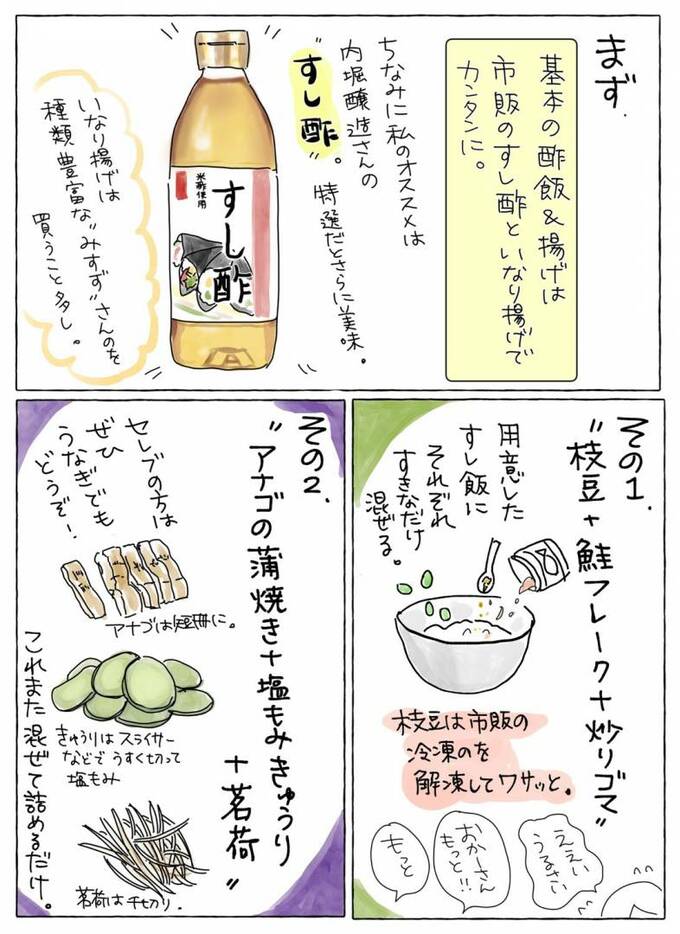 まず、
基本の酢飯&揚げは
市販のすし酢といなり揚げで
カンタンに。
ちなみに私のオススメは
内堀醸造さんの
"すし酢"。
特選だとさらに美味。
米酢使用
すし酢
いなり揚げは
種類豊富な"みすず"さんのを
買うこと多し。
その1.
"枝豆+鮭フレーク+炒りゴマ"
用意した
すし飯に
それぞれ
すきなだけ
混ぜる。
枝豆は市販の
冷凍のを
解凍してワサッと。
ええい
うるさい
おかーさん
もっと!!
もっと
その2.
"アナゴの蒲焼き+塩もみきゅうり
+茗荷"
セレブの方は
ぜひ
うなぎでも
どうぞ!
アナゴは短冊に。
きゅうりはスライサー
などで うすく切って
塩もみ
茗荷は千切り.
これまた混ぜて詰めるだけ。